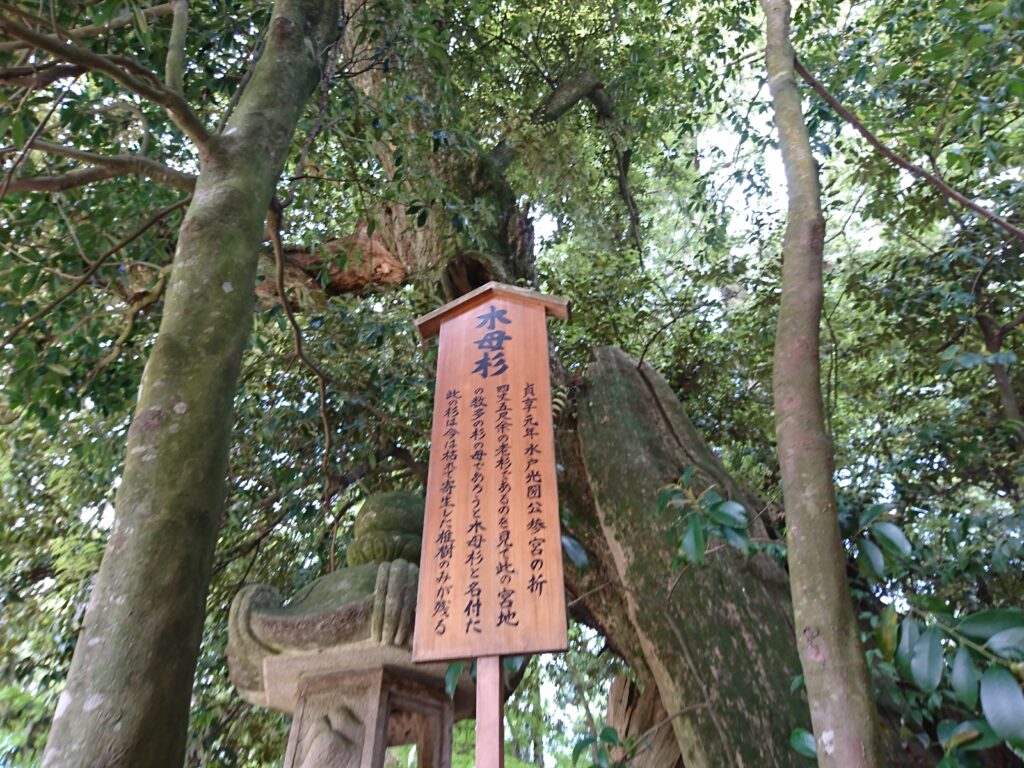 水母杉
貞享元年水戸光圀公参宮の折
四丈五尺余の老杉であるのを見て此の宮地
の数多の杉の母であろうと木母杉と名付た
此の杉は今は枯れて寄生した椎樹のみが残る